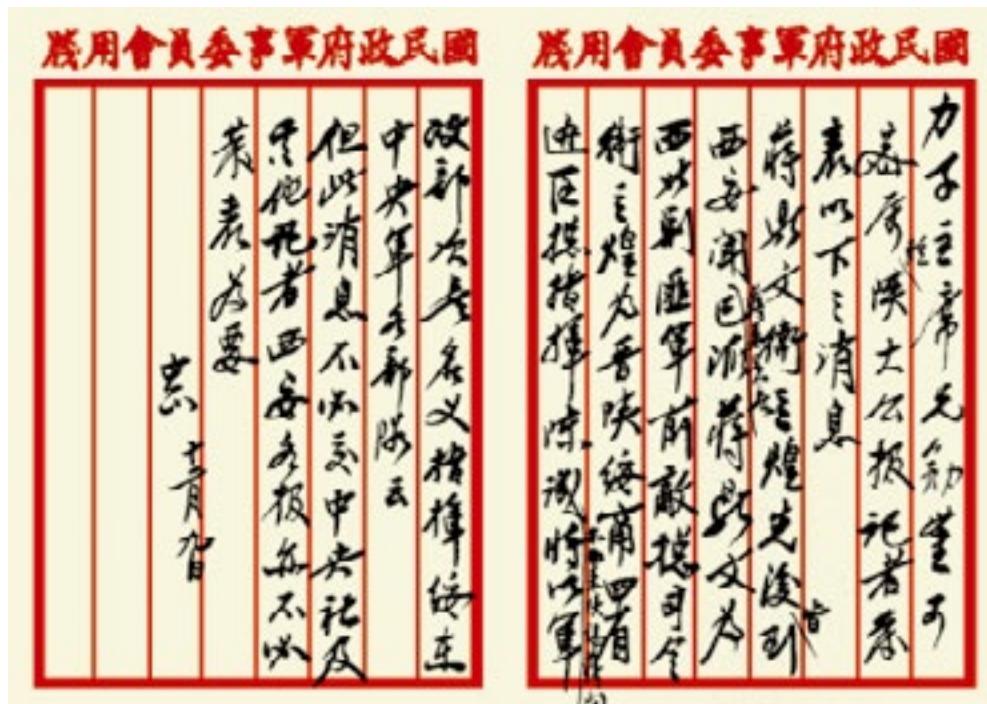 國民政府軍事委員會用牋
力子主席兄勛鑒可
密屬駐陝大公報記者發
表以下之消息
蔣鼎文衛立煌先後皆到
西安聞蔣委員長已派蔣鼎文為
西北剿匪軍前敵總司令
衛立煌為晉陝綏甯四省
邊區總指揮陳誠亦來謁蔣聞將以軍
國民政府軍事委員會用牋
政部次長名義指揮綏東
中央軍各部隊云
但此消息不必交中央社及
其他記者西安各報亦不必
發表為要
中正 十二月九日